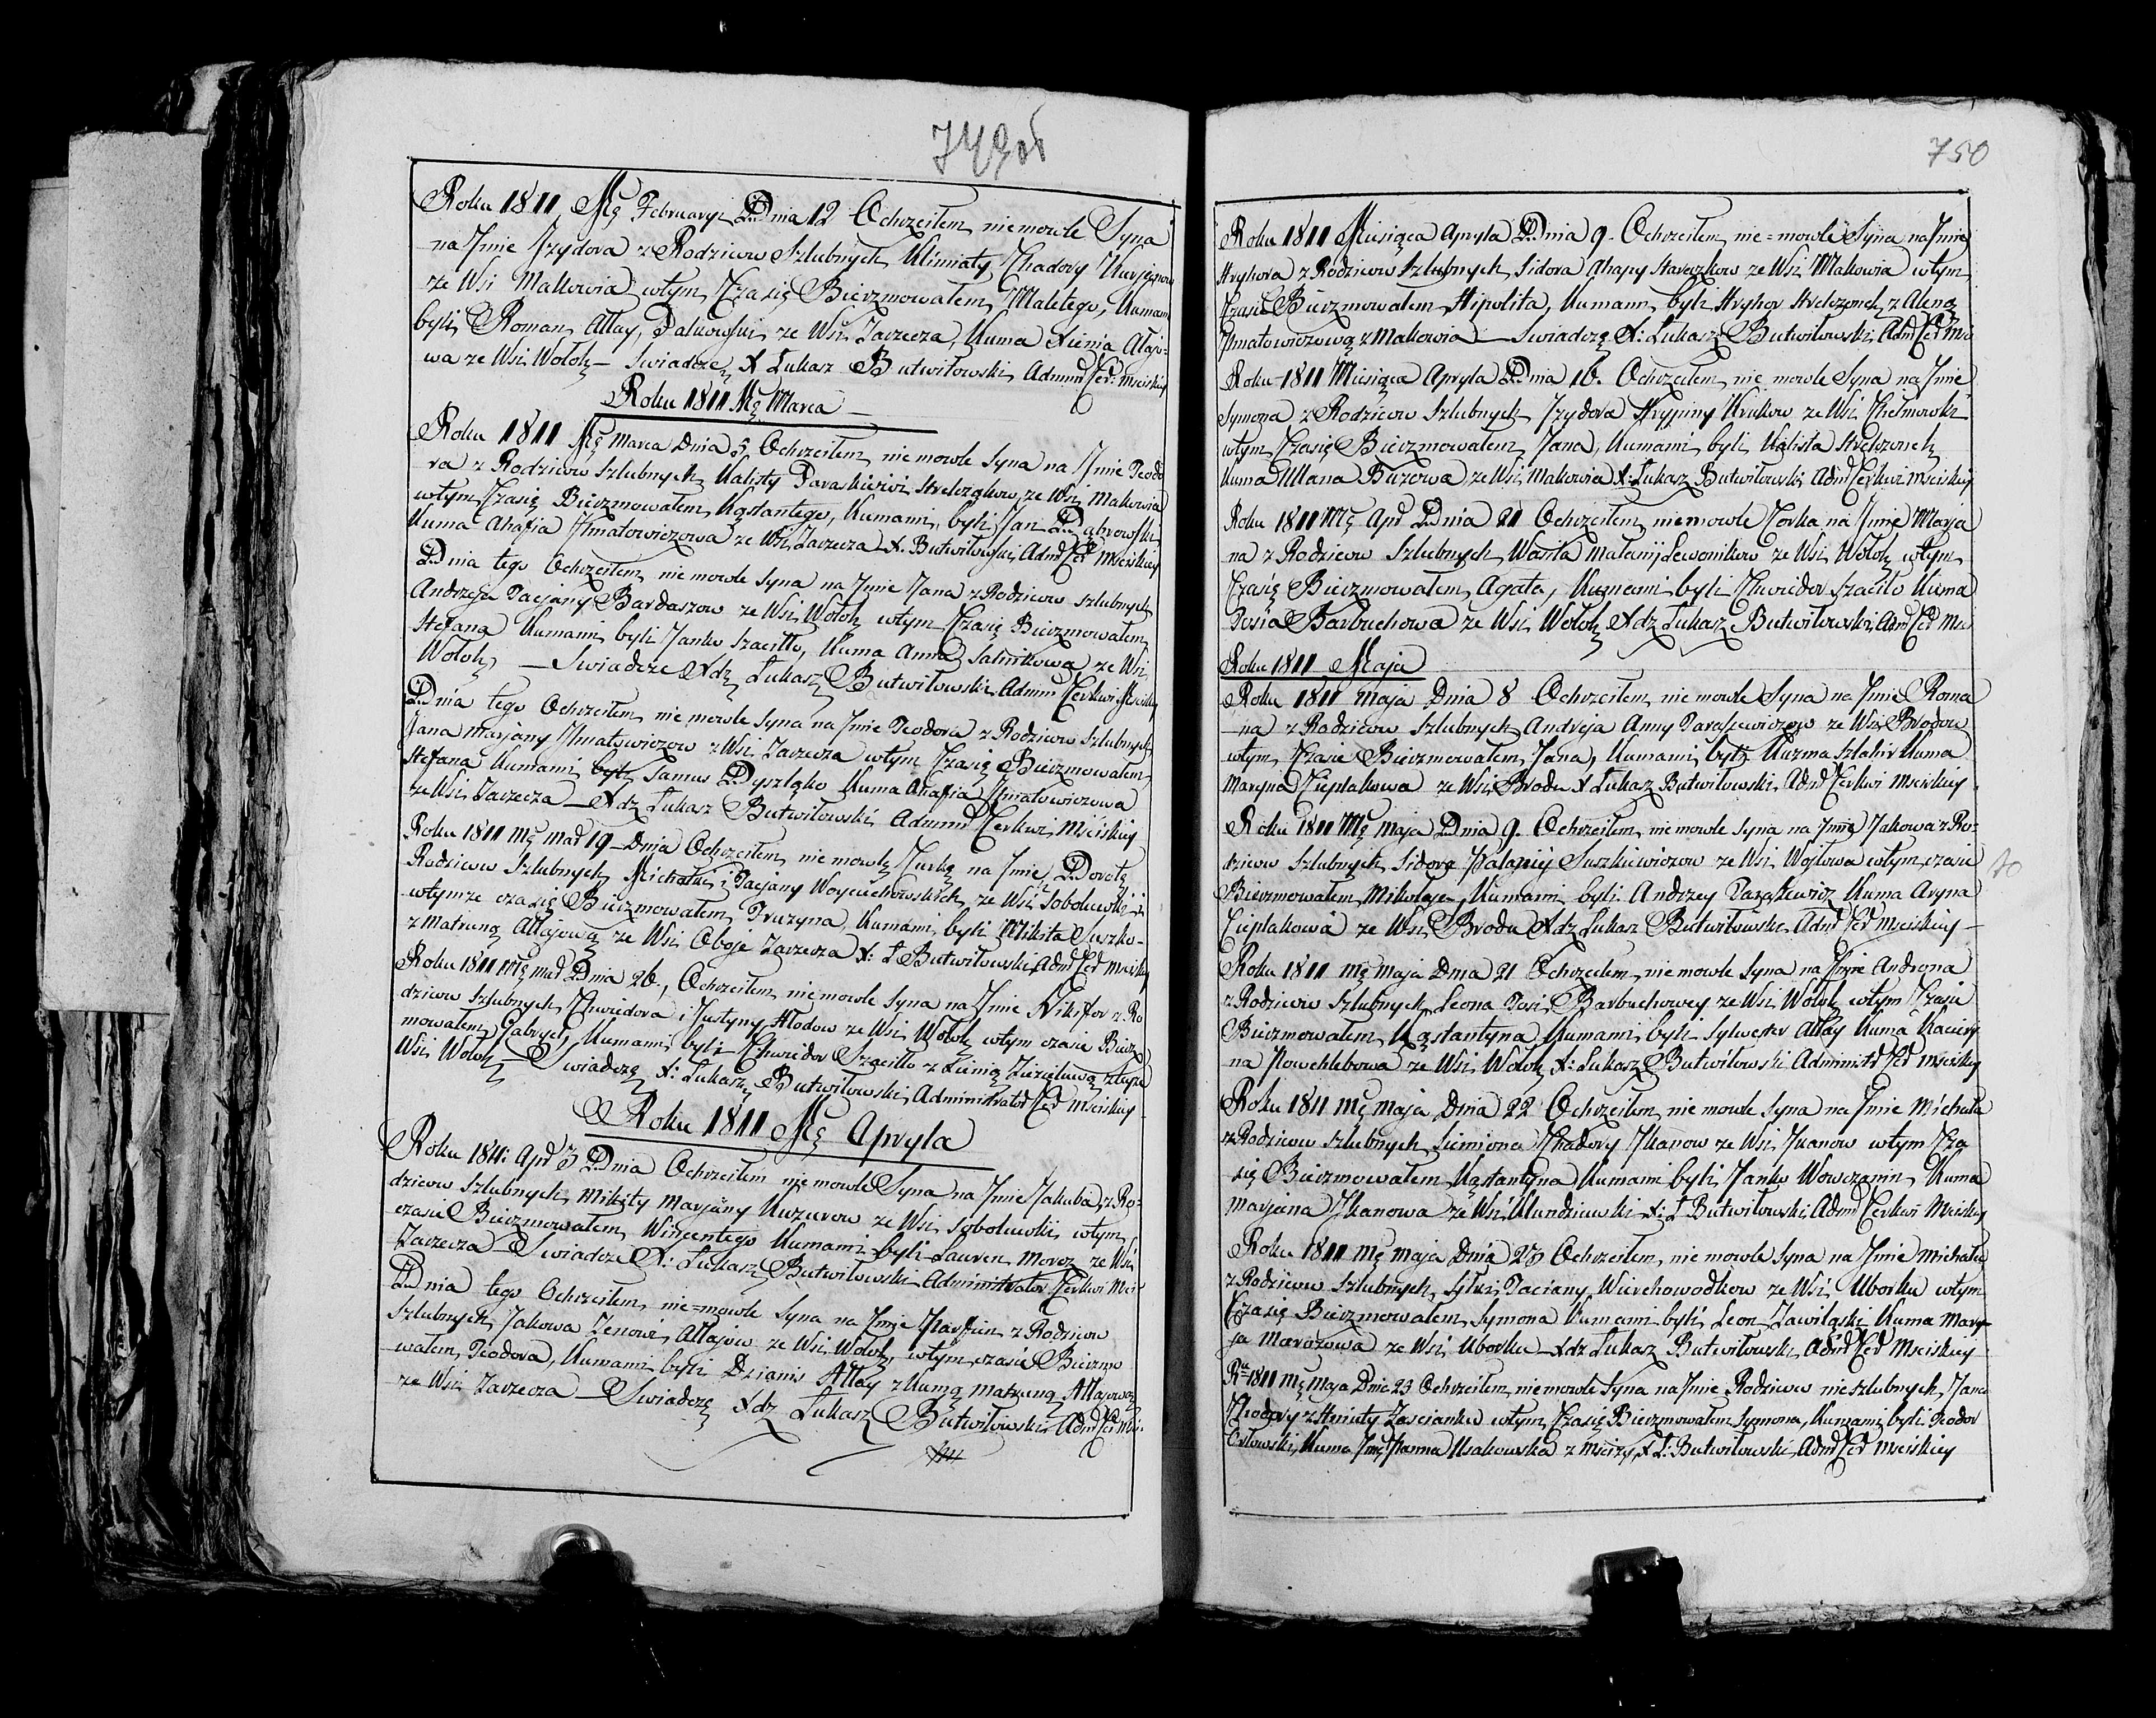 749об
Roku 1811 Mę Februaryi Dnia 12 Ochrzciłem niemowle Syna
na Jmie Jzydora z Rodzicow Szlubnych Klimiaty Chadory
ze Wsi Makowia wtym Czasię Bierzmowałem Maletego, Kumami
byli Roman Ałłay, Dalkowski ze Wsi Zarzecza, Kuma Xienia Ałajo-
wa ze Wsi Wołok – Swiadcze X Łukasz Butwiłowski Admin Cer: Msciskiey
Roku 1811 Mę Marca –
Roku 1811 Mę Marca Dnia 5, Ochrzciłem niemowle Syna na Jmie Teodo
ra z Rodzicow Szlubnych Kalisty Paraskiewi Strelczakow ze Wsi Makowia
wtym Czasię Bierzmowałem Kąstantego, Kumami, byli Jan Dąbrowski
Kuma Ahafia Jhnatowiczowa ze Wsi Zarzecza X. Butwiłowski Admr Cer Msciskiey
Dnia tego Ochrzciłem niemowle Syna na Jmie Jana z Rodzicow szlubnych
Andrzeja Tacjany Bardaszow ze Wsi Wołok wtym Czasię Bierzmowałem
Stefana Kumami byli Janko Szaciłło, Kuma Anna Salnikowa ze Wsi
Wołok, – Swiadcze Xdz Łukasz Butwiłowski Admin Cerkwi Msciskiey
Dnia tego Ochrzciłem niemowle Syna na Jmie Teodora z Rodzicow szlubnych
Jana Marjany Jhnatowiczow z Wsi Zarzecza wtym Czasię Bierzmowałem
Stefana Kumami byli Samus Dyszląko Kuma Ahafia Jhnatowiczowa
ze Wsi Zarzecza – Xdz Łukasz Butwiłowski Admin Cerkwi Mściskiey
Roku 1811 Mę Mar 19 – Dnia Ochrzciłem niemowlę Curkę na Jmie Dorotę
Rodzicow Szlubnych Michałki i Tacjany Woyciechowskich ze Wsi Sobolewki i
wtymze czasię Bierzmowałem Pruzyna, Kumami byli Mikita Suszko-
z Matruną Ałłajową ze Wsi Oboje Zarzecza X: Ł Butwiłowski Admr Cer Msciskiey
Roku 1811 Mę Mar Dnia 26, Ochrzciłem niemowle Syna na Jmie Nikifor z Ro
dzicow Szlubnych Chwiedora i Justyny Hłodow ze Wsi Wołok wtym czasie Bierz
mowałem Gabryel, Kumami byli – Chwiedor Szaciłło z Xienią
Wsi Wołok – Swiadczę X: Łukasz Butwiłowski Administrator Cer Msciskiey
Roku 1811 Mę Apryla
Roku 1811: Apr 3 Dnia Ochrzciłem niemowle Syna na Jmie Jakuba, z Ro-
dzicow Szlubnych Mikity Marjany Kuzurow ze Wsi Sobolewki wtym
czasie Bierzmowałem Wincentego Kumami byli Lauren Moroz ze Wsi
Zarzecza – Swiadcze X: Łukasz Butwiłowski Administrator Cerkwi Msci
Dnia tego Ochrzciłem nie=mowle Syna na Jmie Parfien z Rodzicow
Szlubnych Jakowa Zenowi Ałłajow ze Wsi Wołok, wtym czasie Bierzmo
wałem, Teodora, Kumami byli Dzianis Ałłay z Kumą Matruną Ałłajową
ze Wsi Zarzecza – Swiadczę Xdz Łukasz Butwiłowski Admr Cer Msci:
750
Roku 1811 Miesiąca Apryla Dnia 9. Ochrzciłem nie=mowle Syna na Jmie
Hryhora z Rodzicow Szlubnych Sidora Ahapy Staraczkow ze Wsi Makowia wtym
Czasie Bierzmowałem Hipolita, Kumami byli Hryhor Strelczonek z Aleną
Jhnatowiczową z Makowia – Swiadczę X: Łukasz Butwiłowski Admr Cer Msci
Roku 1811 Miesiąca Apryla Dnia 16. Ochrzciłem nie mowle Syna na Jmie
Symona z Rodzicow Szlubnych Jzydora Hrypiny Krukow ze Wsi Chełmowki
wtym Czasię Bierzmowałem Jana, Kumami byli Kalista Strelczonek
Kuma Ullana Buzowa ze Wsi Makowia X: Łukasz Butwiłowski Admr Cerkwi Msciskiey
Roku 1811 Mę Apr Dnia 21 Ochrzciłem niemowle Corka na Jmie Marja
na z Rodzicow Szlubnych Wasila Małanij Lewonikow ze Wsi Wołok wtym
Czasię Bierzmowałem Agata, Kumami byli Chwiedor Szaciło Kuma
Tosia Barbuchowa ze Wsi Wołok Xdz Łukasz Butwiłowski Admr Cer Msci
Roku 1811 Maja
Roku 1811 Maja Dnia 8 Ochrzciłem niemowle Syna na Jmie Roma
na z Rodzicow Szlubnych Andreja Anny Tarasewiczow ze Wsi Brodow
wtym Czasie Bierzmowałem Jana, Kumami byli Kuzma Szlahir Kuma
Maryna Cieplakowa ze Wsi Brodu X Łukasz Butwiłowski Admr Cerkwi Msciskiey.
Roku 1811 Mę Maja Dnia 9. Ochrzciłem nie mowle syna na Jmie Jakowa z Ro-
dzicow Szlubnych Sidora Pałagiij Suszkiewiczow ze Wsi Wojtowa wtym czasie
Bierzmowałem Mikołaja, Kumami byli Andrzey Taraszkewicz Kuma Aryna
Cieplakowa ze Wsi Brodu Xdz Łukasz Butwiłowski Admr Cer Mscickiey –
Roku 1811 mę Maja Dnia 21 Ochrzciłem niemowle Syna na Jmie Androna
z Rodzicow Szlubnych Leona Tosi Barbuchowey ze Wsi Wołok wtym Czasie
Bierzmowałem Kąstantyna Kumami byli Sylwester Ałłay Kuma Kaciery
na Powchlebowa ze Wsi Wołok X: Łukasz Butwiłowski Administr Cer Mscickiey
Roku 1811 mę Maja Dnia 22 Ochrzciłem niemowle Syna na Jmie Michała
z Rodzicow Szlubnych Siemiona Chadory Jkanow ze Wsi Jkanow wtym Cza
się Bierzmowałem Kąstantyna Kumami byli Janko Wowczanin, Kuma
Marjana Jkanowa ze Wsi Klundziewki X: Ł Butwiłowski Admr Cerkwi Mscickiey
Roku 1811 mę Maja Dnia 23 Ochrzciłem, nie mowle Syna na Jmie Michała
z Rodzicow Szlubnych, Taciany Wierchowodkow ze Wsi Uborku wtym
Czasię Bierzmowałem Symona Kumami byli Leon Zawiląski Kuma Mary
ja Marozowa ze Wsi Uborku Xdz Łukasz Butwiłowski Admr Cer Mscickiey
Rku 1811 Mę Maja Dnia 23 Ochrzciłem niemowle Syna na Jmie Rodzicow nieszlubnych, Jana
Chodory z Zascianku wtym Czasię Bierzmowałem Symona, Kumami byli Teodor
Orłowski, Kuma Jme Panna Usakowska z Mscizy X Ł: Butwiłowski Admr Cer Mscickiey